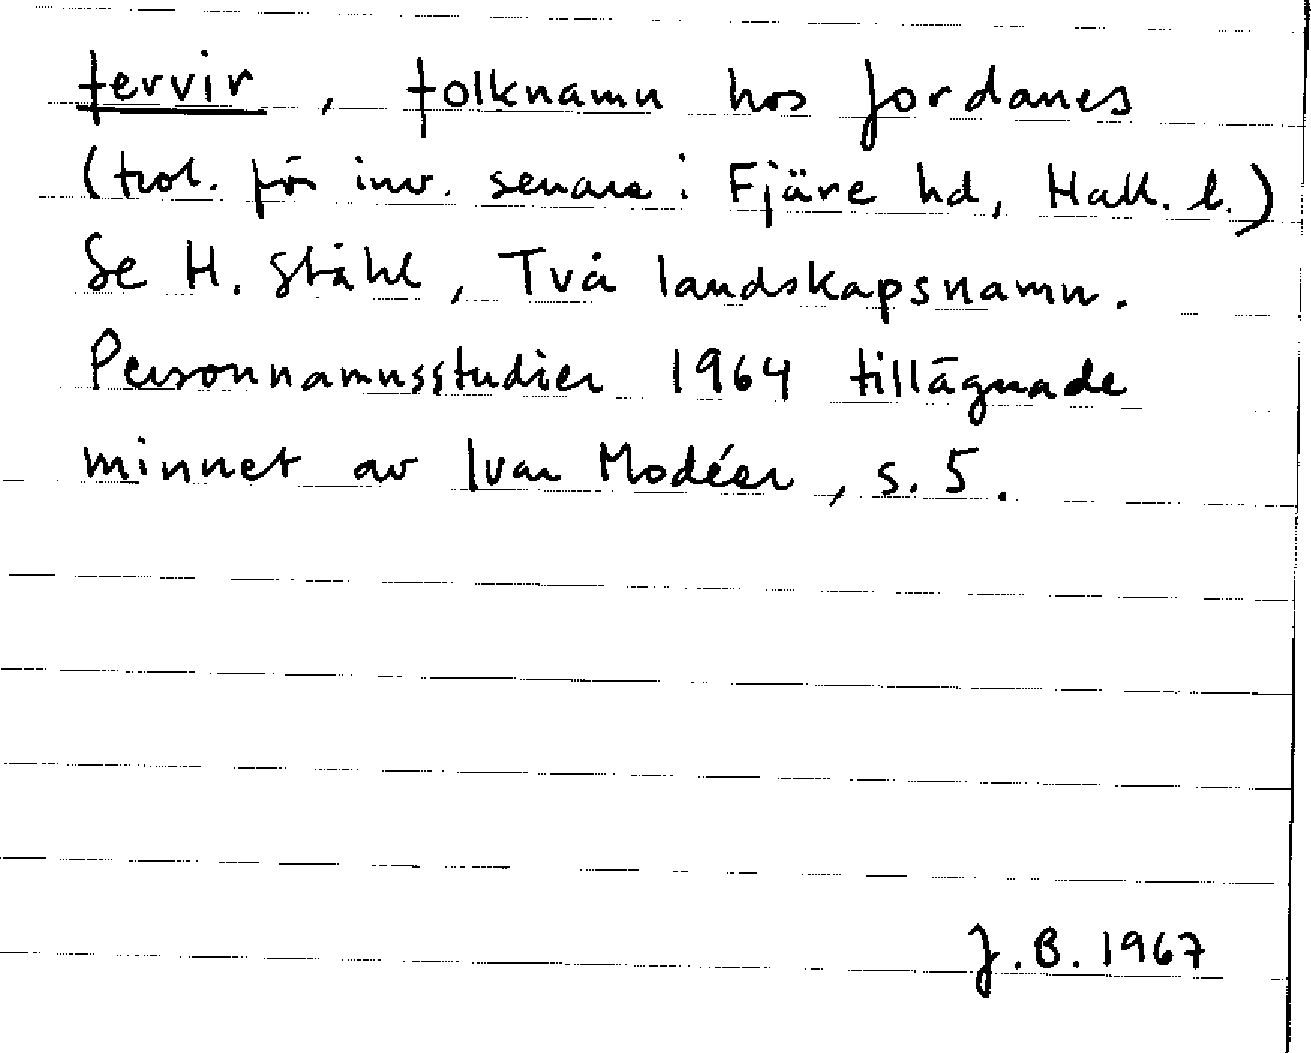 fervir, folknamn hos Jordanes
(trol. för inv. senare i Fjäre hd, Hall. l.)
Se H. Ståhl, Två landskapsnamn.
Personnamnsstudier 1964 tillägnade
minnet av Ivar Modéer, s. 5.
J.B. 1967